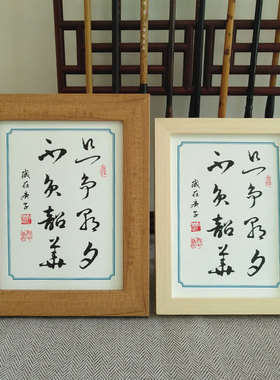 只争朝夕
不负韶華
歲在庚子
只争朝夕
不负韶華
歲在庚子